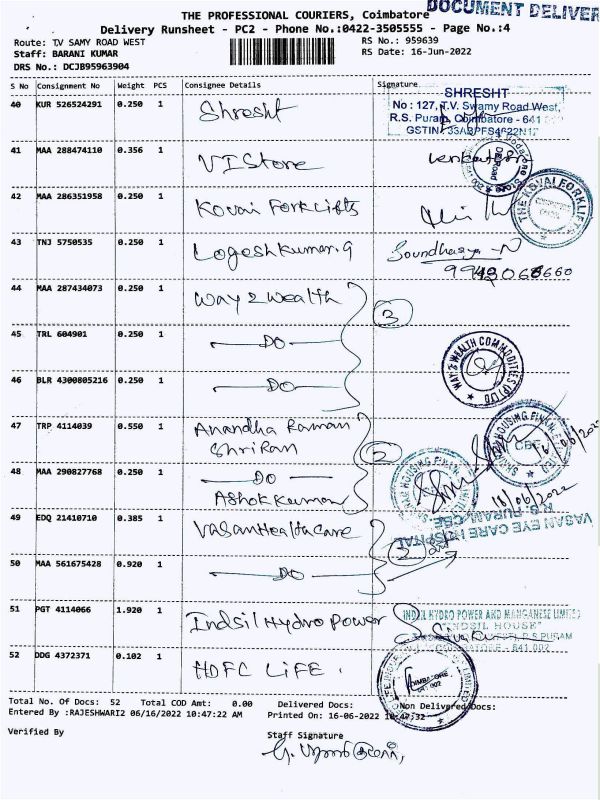 DOCUMENT DELIVER
THE PROFESSIONAL COURIERS, Coimbatore
Delivery Runsheet - PC2 - Phone No.:0422-3505555 - Page No.:4
Route: TV SAMY ROAD WEST
RS No.: 959639
Staff: BARANI KUMAR
RS Date: 16-Jun-2022
DRS No.: DCJB95963904
S No Consignment No Weight PCS Consignee Details Signature
40 KUR 526524291 0.250 1 Shresht
SHRESHT
No : 127, T.V. Swamy Road West,
R.S. Puram, Coimbatore - 641
41 MAA 288474110 0.356 1 VI Store
42 MAA 286351958 0.250 1 Kovai Forklifts
THE KOVAI FORKLIFTS
43 TNJ 5750535 0.250 1 Logeshkumar.g
44 MAA 287434073 0.250 1 Way 2 Wealth 3
45 TRL 604901 0.250 1 DO
WAY 2 WEALTH COMMODITIES (P) LTD
46 BLR 4300805216 0.250 1 DO
47 TRP 4114039 0.550 1 Anandha Raman
Shri Ram
CBE
48 MAA 290827768 0.250 1 DO
Ashok Kumar
16/06/2022
49 EDQ 21410710 0.385 1 Vasan Healthcare
VASAN EYE CARE HOSPITAL
R.S. PURAM, CBE
50 MAA 561675428 0.920 1 DO
51 PGT 4114066 1.920 1 Indsil Hydro Power
INDSIL HYDRO POWER AND MANGANESE LIMITED
"INDSIL HOUSE"
52 DDG 4372371 0.102 1 HDFC LIFE.
COIMBATORE
Total No. Of Docs: 52 Total COD Amt: 0.00 Delivered Docs: Non Delivered Docs:
Entered By :RAJESHWARI2 06/16/2022 10:47:22 AM Printed On: 16-06-2022 10:47:32
Verified By
Staff Signature